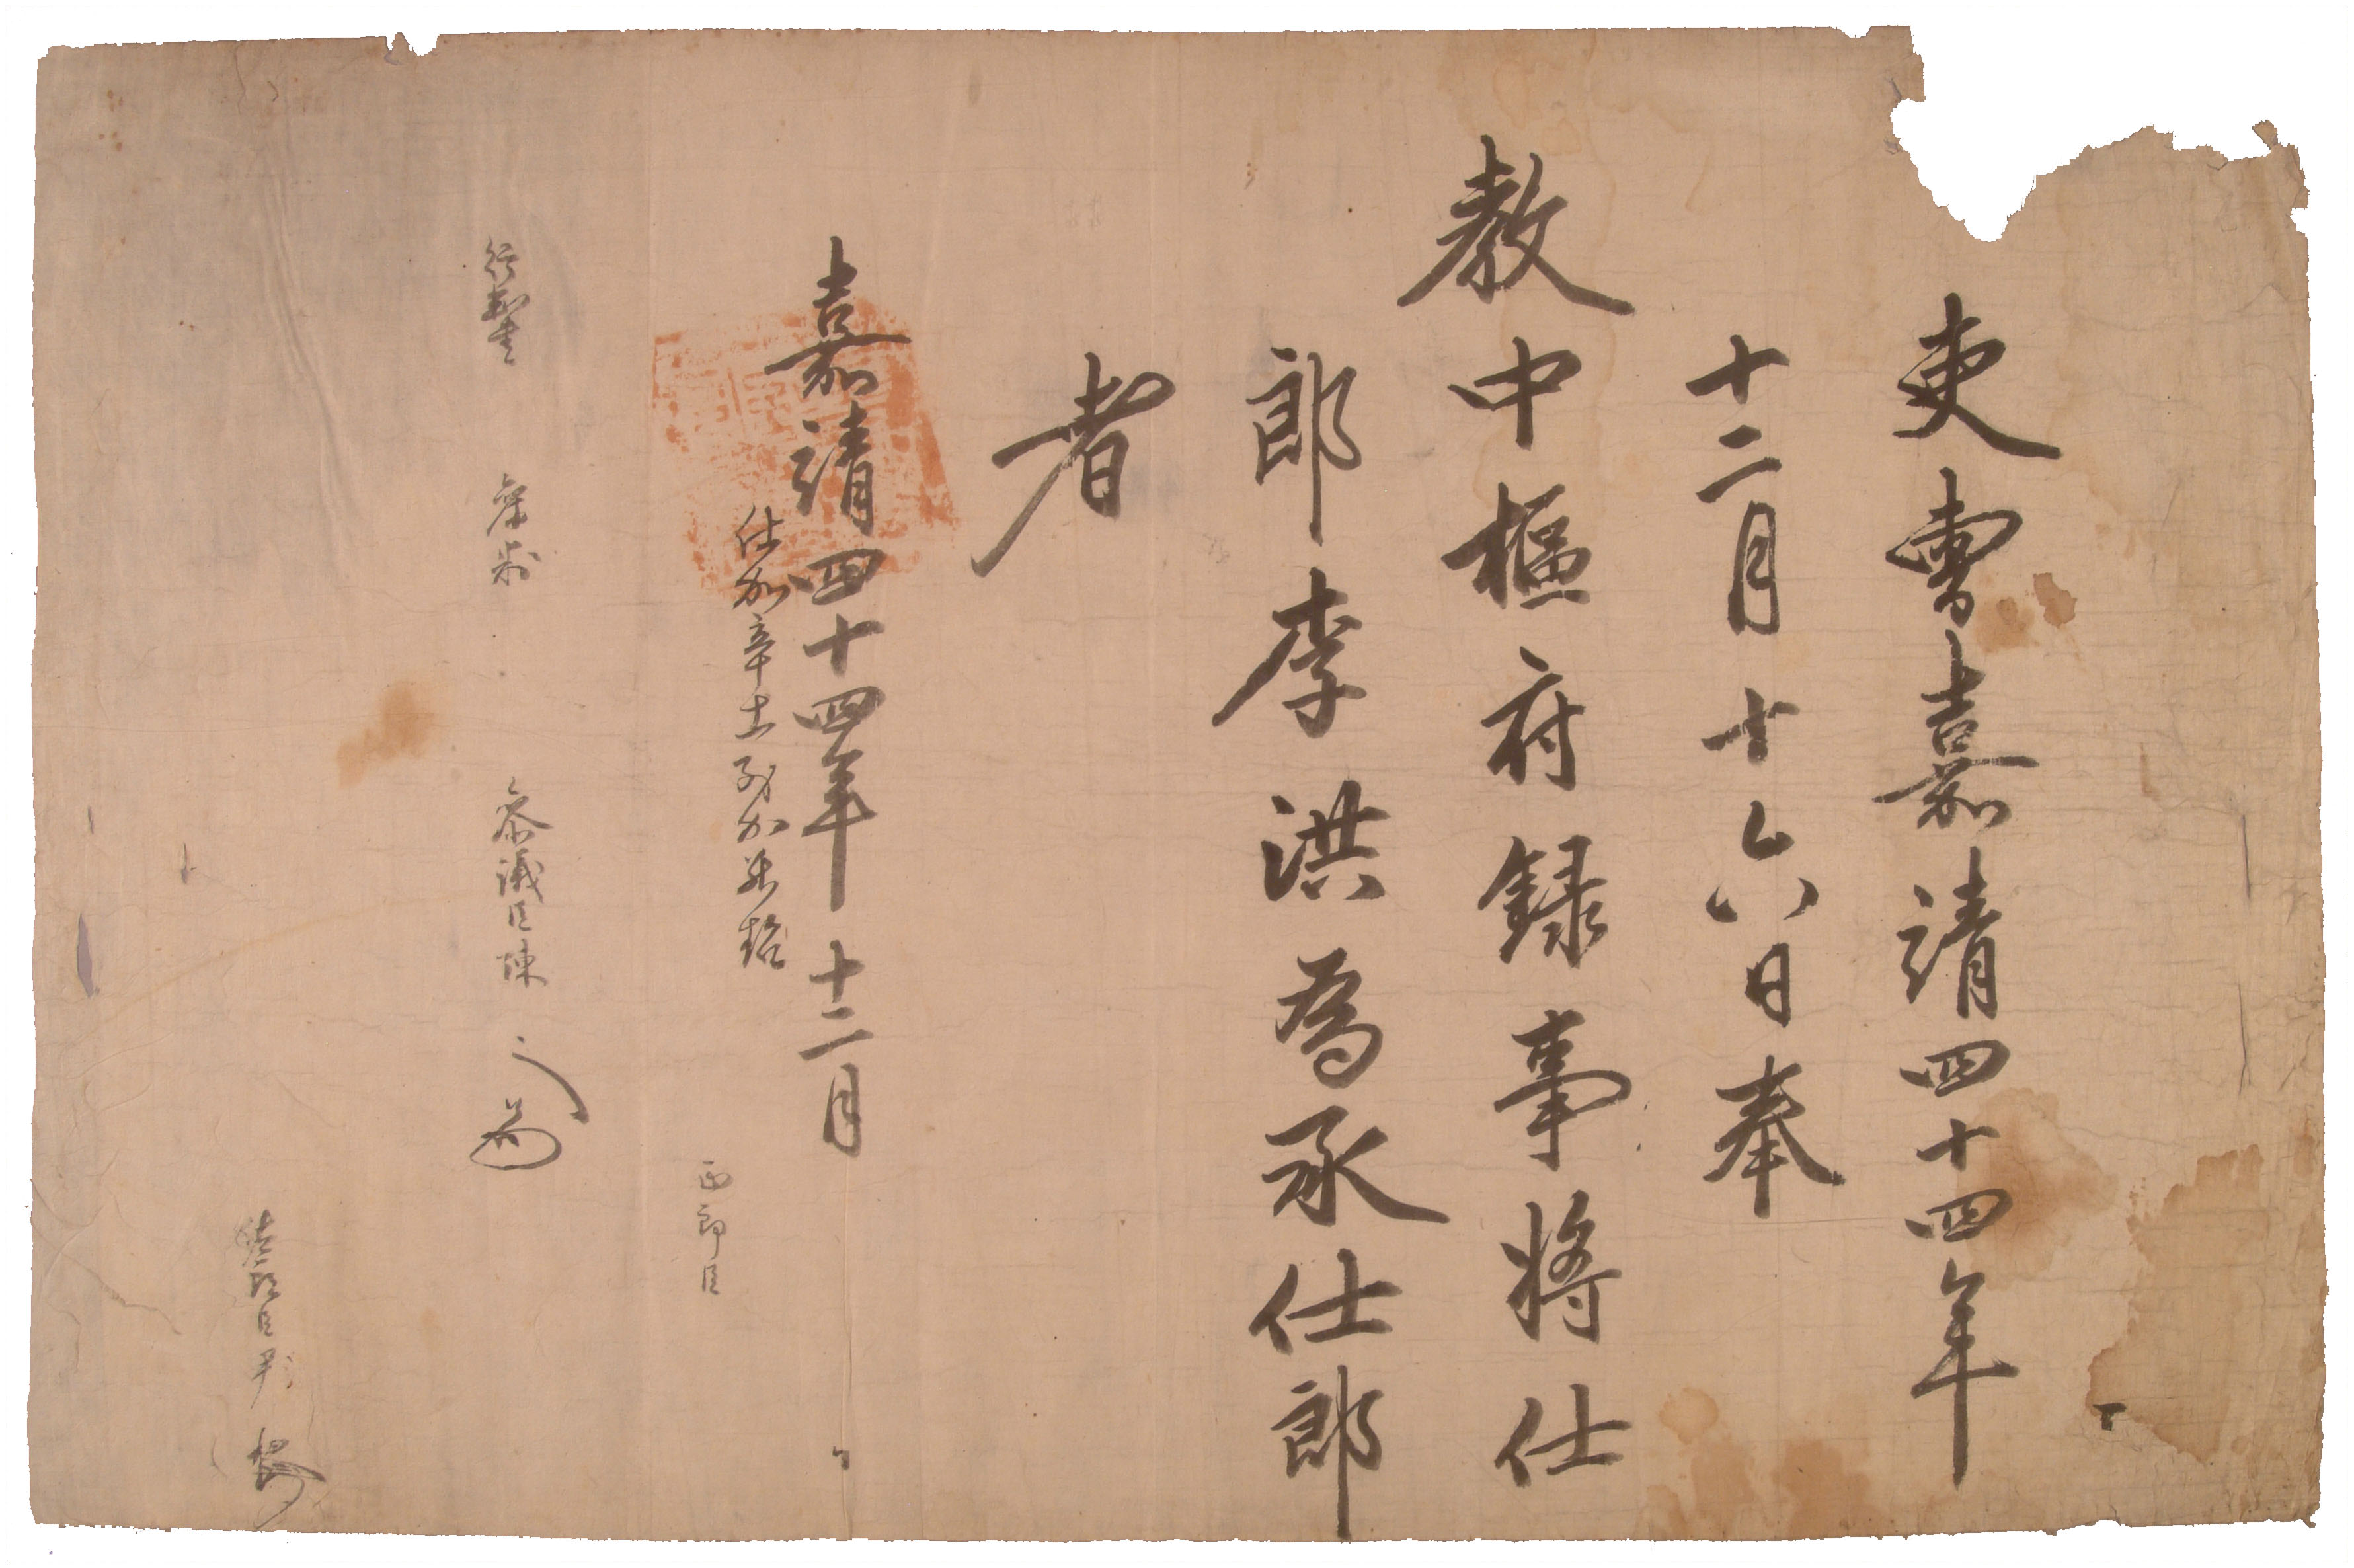 吏曹嘉靖四十四年
十二月十六日奉
教中樞府錄事將仕
郎李洪爲承仕郎
者
嘉靖四十四年十二月
仕加辛士
正郎臣
行判書 參判 參議臣陳
佐郎臣尹